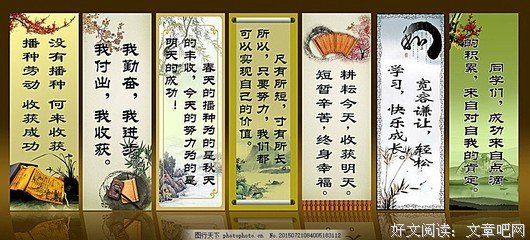 没有播种 何来收获
播种劳动 收获成功
我勤奋，我进步
我付出，我收获。
春天的播种为的是秋天
的丰收，今天的努力为的是
明天的成功！
尺有所短，寸有所长
所以，只要努力，我们都
可以实现自己的价值。
耕耘今天，收获明天。
短暂辛苦，终身幸福。
宽容谦让，轻松
学习，快乐成长。
同学们，成功来自点滴
的积累，来自对自我的肯定。
好文阅读：文章吧网